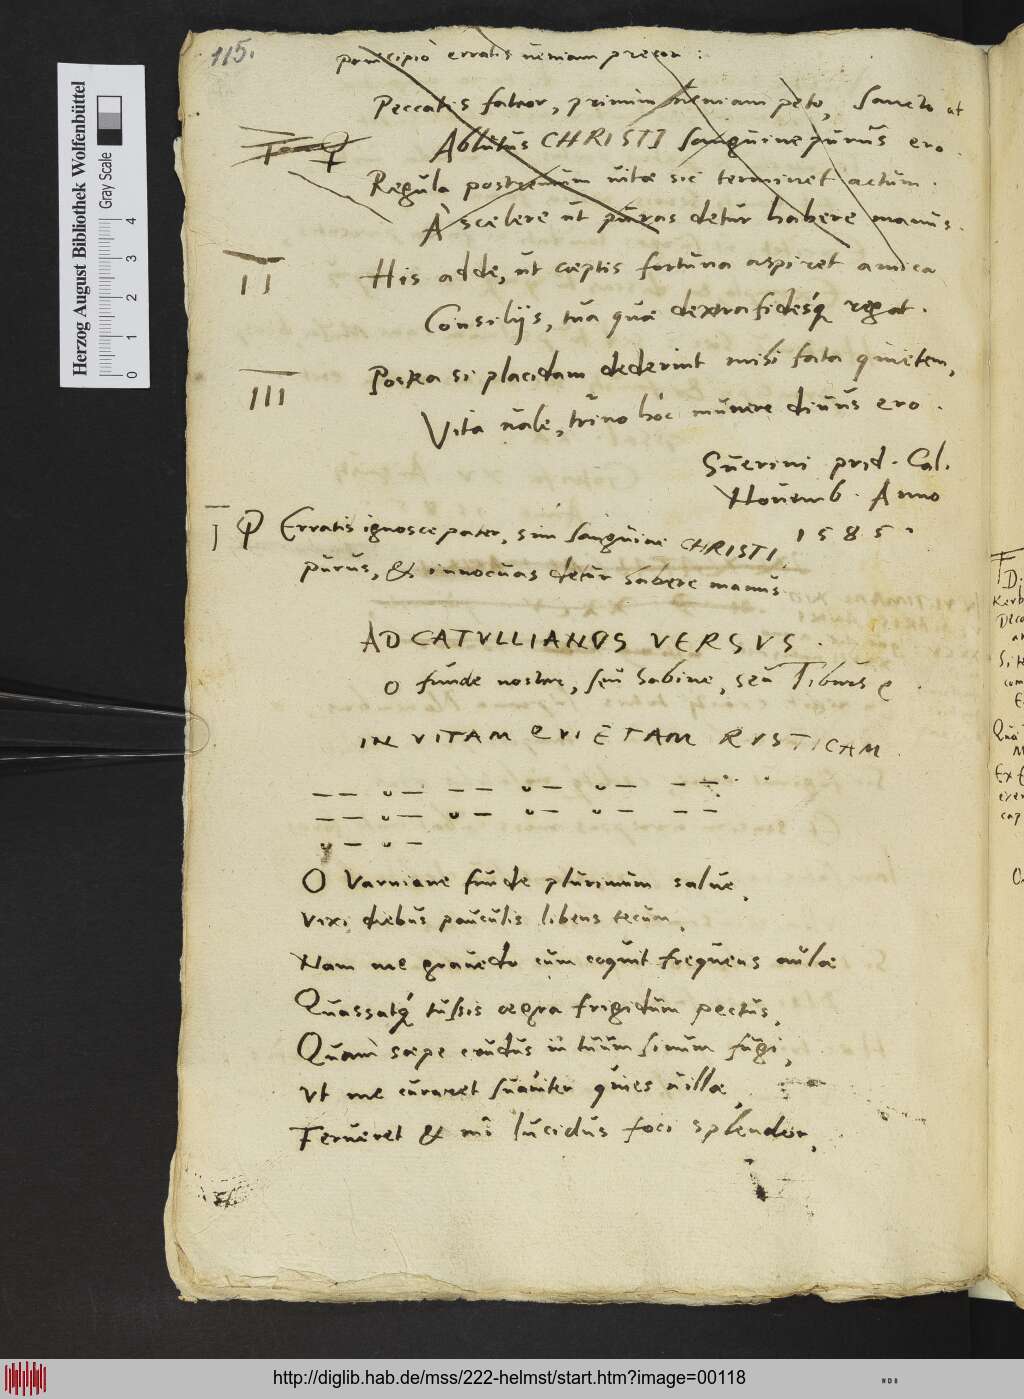 115.
principio erratis veniam precor :
Peccatis fateor, primum veniam peto, sancto ut
Ablutus CHRISTI sanguine purus ero.
Regula postremum vitae sic terminet actum.
A scelere ut puras detur habere manus.
II His adde, ut cœptis fortuna aspiret amica
Consilijs, tua quae dextra fidesq́ regat.
III Postea si placidam dederint mihi fata quietem,
Vita vale, trino hoc munere divus ero.
Suerini prid. Cal.
Novemb. Anno
1585.
I Erratis ignosce pater, sim sanguine CHRISTI
purus, & innocuas detur habere manus.
AD CATVLLIANOS VERSVS.
O funde noster, seu Sabine, seu Tiburs &.
IN VITAM QVIETAM RVSTICAM.
— — ᴗ — — — ᴗ — ᴗ — — —
— — ᴗ — ᴗ — ᴗ — ᴗ — — —
ᴗ — ᴗ —
O Varniane funde plurimum salve,
Vixi diebus pauculis libens tecum,
Nam me gravedo cum coquit frequens aulae
Quassatq́ tussis aegra frigidum pectus,
Quam saepe crudus in tuum sinum fugi,
Vt me curaret suaviter quies villae,
Ferveret & mî lucidus foci splendor,
Herzog August Bibliothek Wolfenbüttel
Gray Scale
0 1 2 3 4
http://diglib.hab.de/mss/222-helmst/start.htm?image=00118